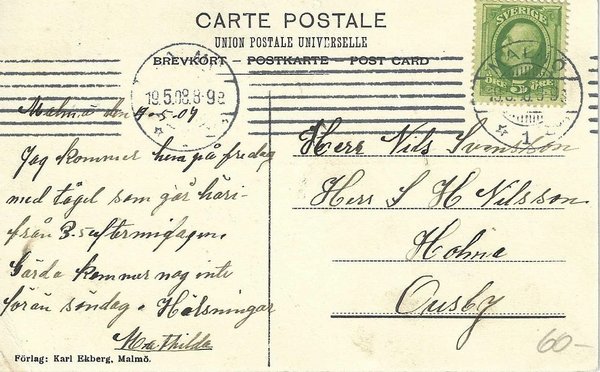 CARTE POSTALE
UNION POSTALE UNIVERSELLE
BREVKORT – POSTKARTE – POST CARD
SVERIGE
5
MALMÖ
19.5.08.8-9
1
Malmö den
Jag kommer hem på fredag
med tåget som går häri-
från 3.5 eftermidagen.
Gärda kommer nog inte
förän söndag. Hälsningar
Mathilda
Herr Nils Svensson
Herr S H Nilsson
Holma
Ousby
60-
Förlag: Karl Ekberg, Malmö.